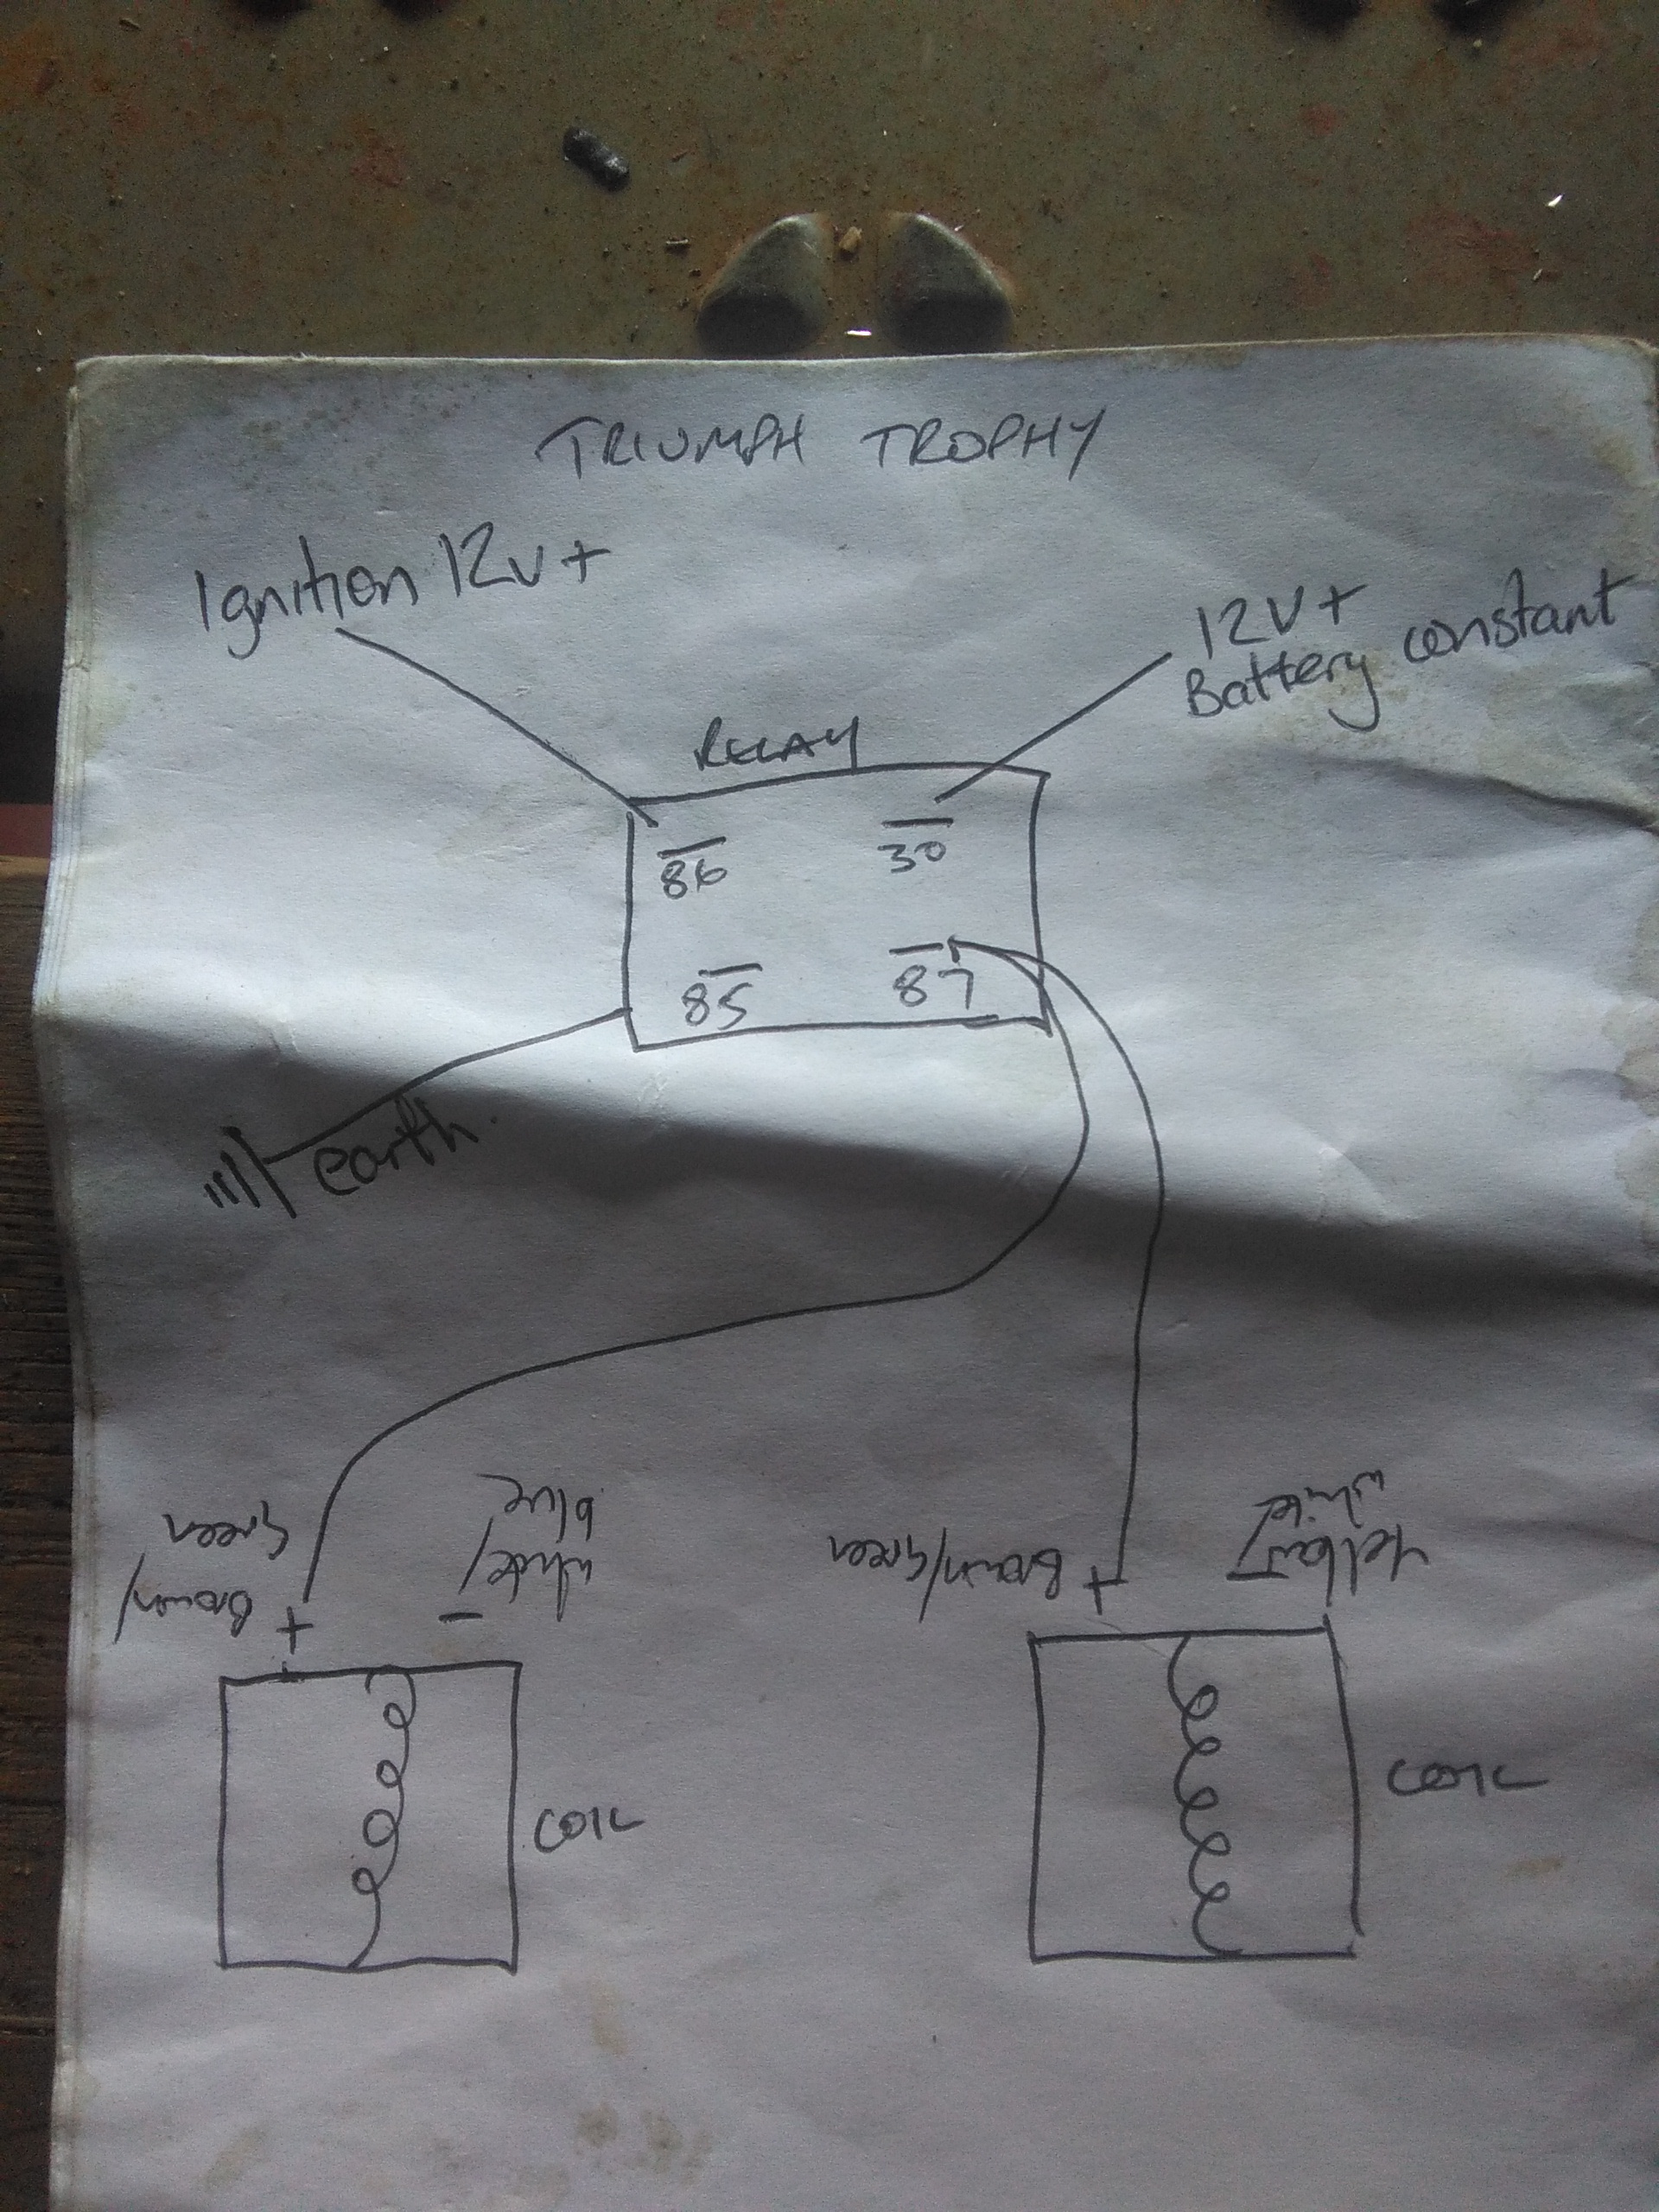 TRIUMPH TROPHY
Ignition 12v+
12V+
Battery constant
RELAY
86
30
85
87
earth.
Brown/
Green
+
white/
blue
-
Brown/Green
+
Yellow/
white
COIL
COIL